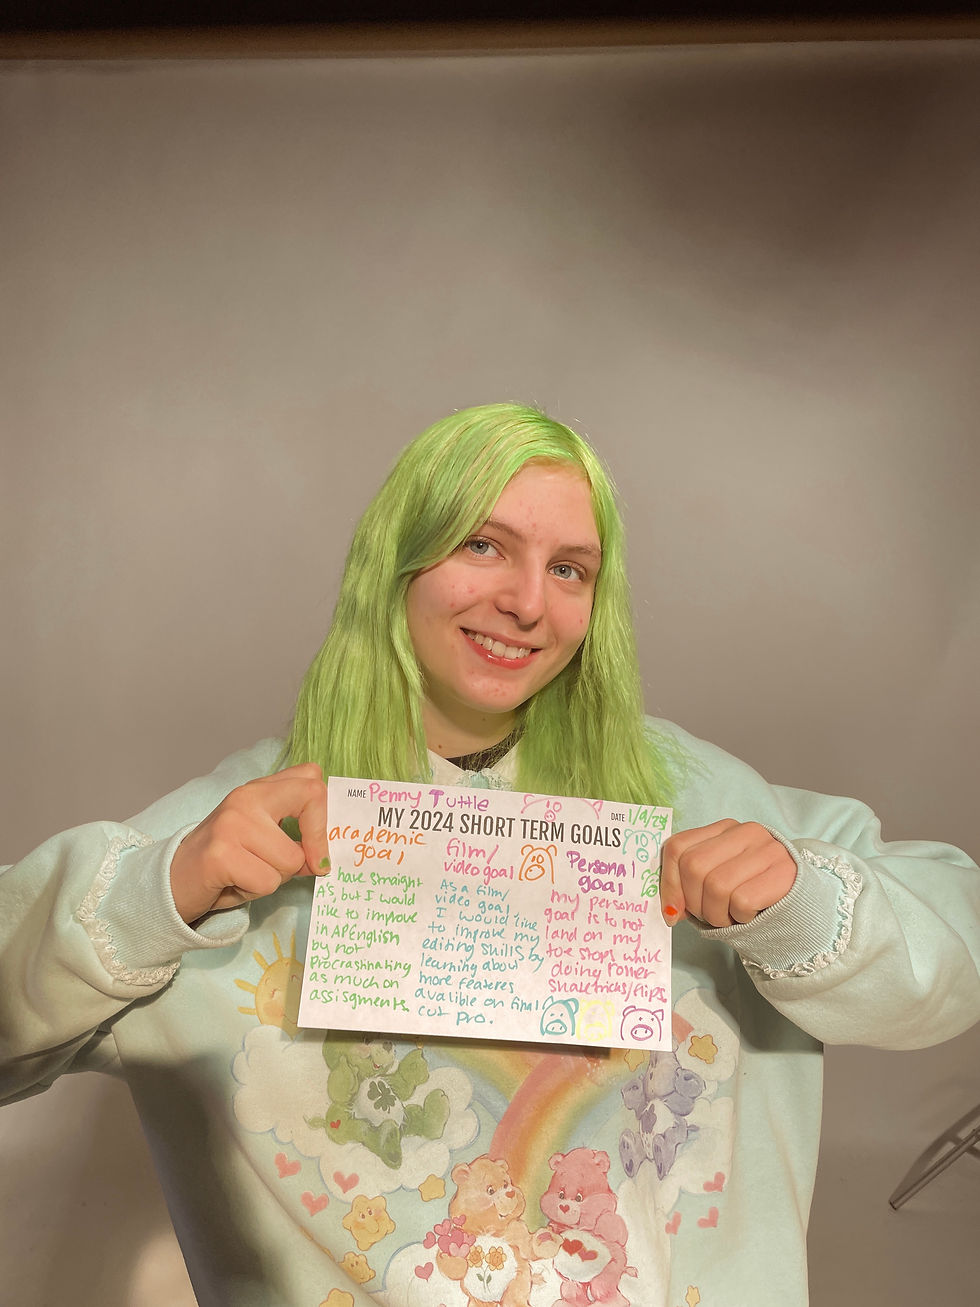 NAME Penny Tuttle
DATE 1/9/24
MY 2024 SHORT TERM GOALS
academic
goal
I have straight
A's, but I would
like to improve
in AP English
by not
Procrastinating
as much on
assisgments
film/
video goal
As a film/
video goal
I would like
to improve my
editing skills by
learning about
more feateres
avalible on final
cut pro.
Personal
goal
my personal
goal is to not
land on my
toe stops while
doing roller
skate tricks/flips